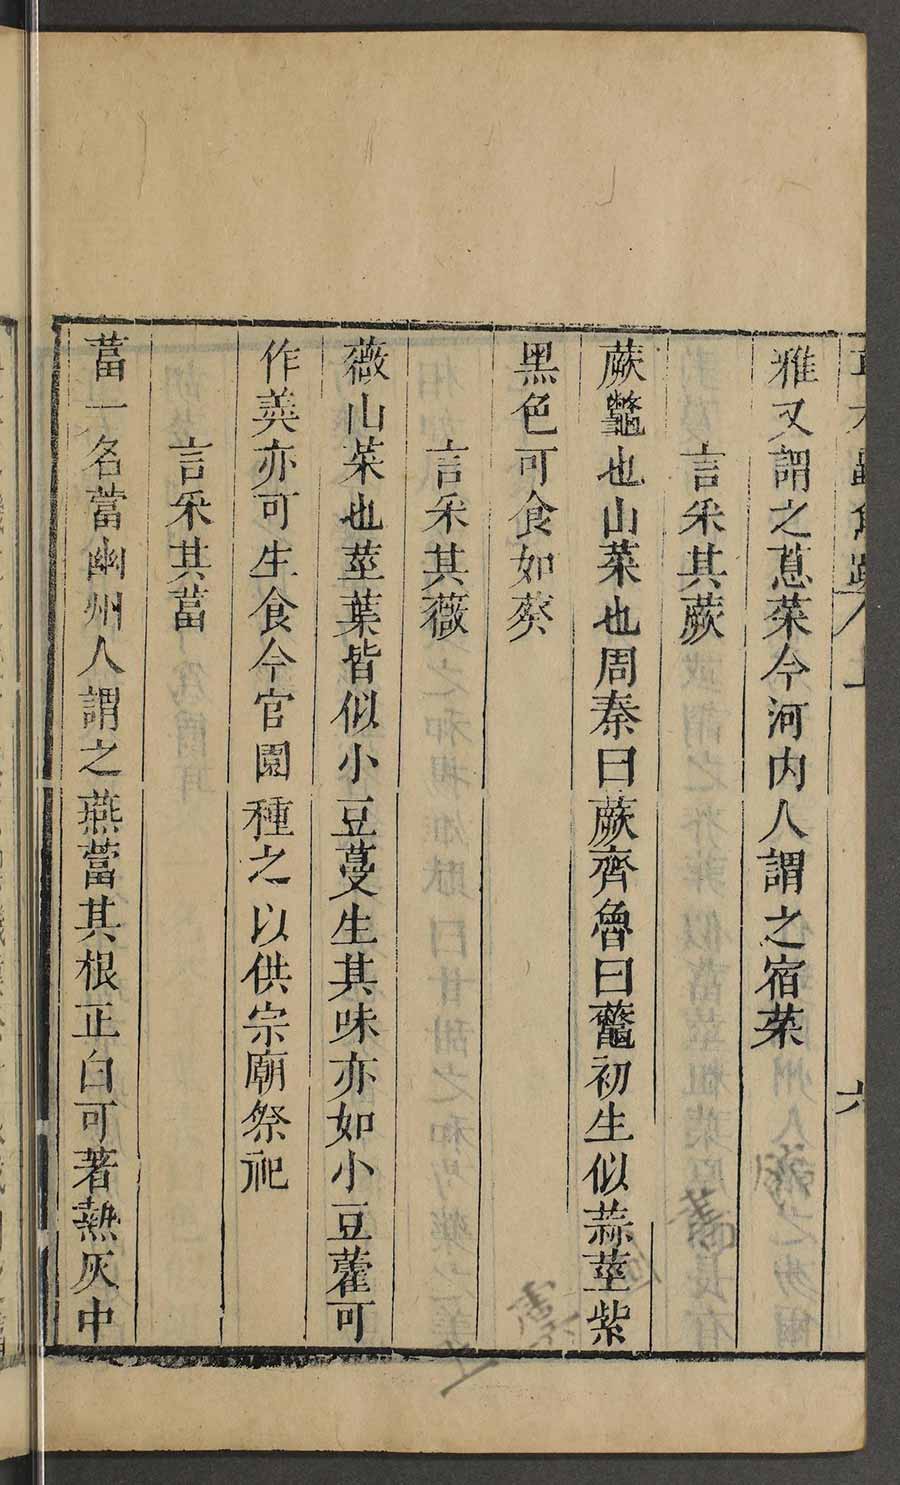 雅又謂之蒠菜今河内人謂之宿菜
言采其蕨
蕨鼈也山菜也周秦曰蕨齊魯曰虌初生似蒜莖紫
黑色可食如葵
言采其薇
薇山菜也莖葉皆似小豆蔓生其味亦如小豆藿可
作羹亦可生食今官園種之以供宗廟祭祀
言采其葍
葍一名䔰幽州人謂之燕䔰其根正白可著熱灰中